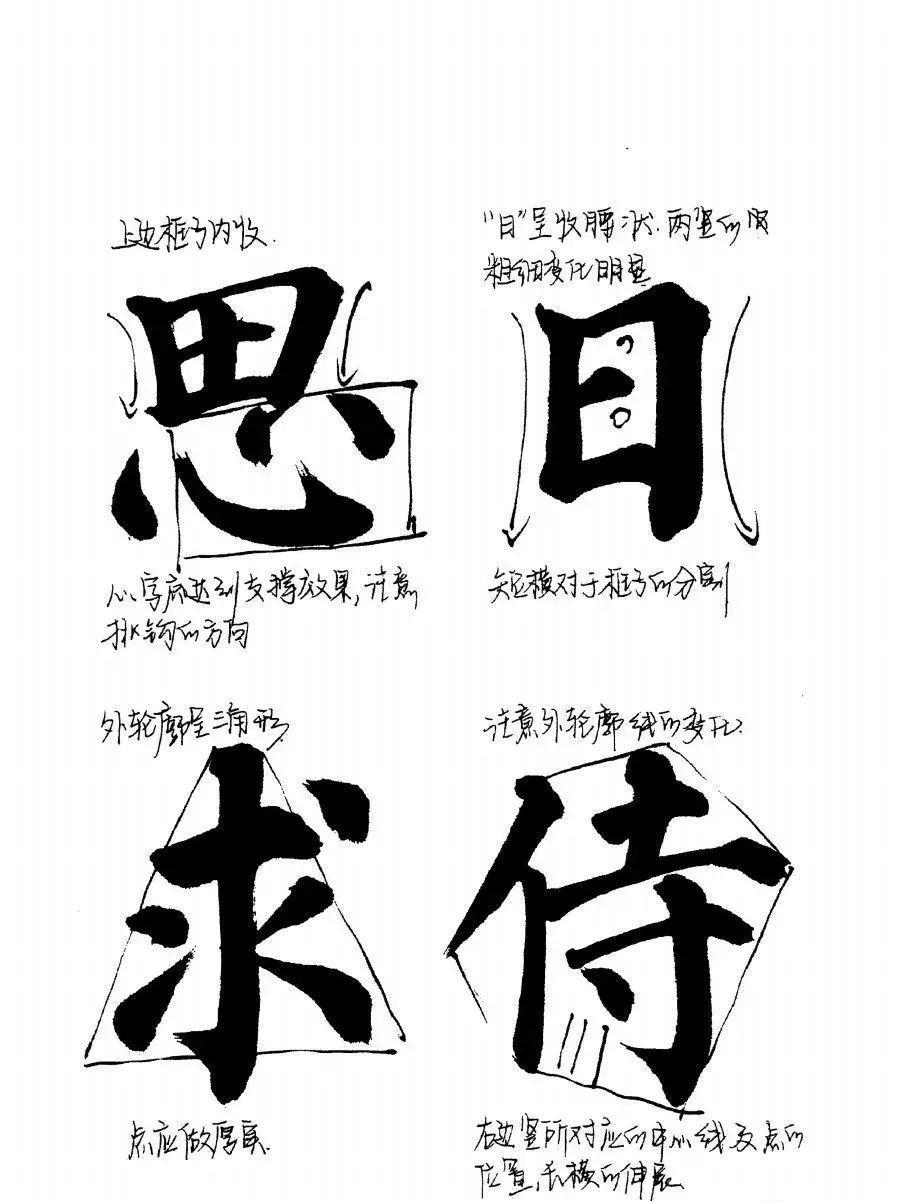 上边框子内收.
思
心字底达到支撑效果,注意
挑钩的方向
"日"呈收腰状.两竖的
粗细变化明显
日
短横对于框子的分割
外轮廓呈三角形.
求
点应做厚实.
注意外轮廓线的变化.
侍
右边竖所对应的中心线及点的
位置,长横的伸展.